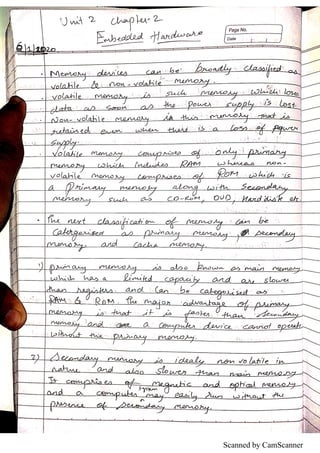 Unit 2 Chapter-2
Embedded Hardware
Page No.
Date
6/1/2020
Memory devices can be broadly classified as
volatile & non-volatile memory.
volatile memory is such memory which loses
data as soon as the power supply is lost.
Non-volatile memory is this memory that is
retained even when there is a loss of power
supply.
volatile memory comprises of only primary
memory which includes RAM whereas non-
volatile memory comprises of ROM which is
a Primary memory along with Secondary
memory such as CD-ROM, DVD, Hard disk etc
The next classification of memory can be
categorised as primary memory, secondary
memory, and cache memory.
1) primary memory is also known as main memory
which has a limited capacity and are slower
than registers and can be categorised as
RAM & ROM. The major advantage of primary
memory is that it is faster than Secondary
memory and a computer device cannot operate
without this primary memory.
2) Secondary memory is idealy non volatile in
nature and also slower than main memory
It comprises of magnetic and optical memory
and a computer system may easily run without the
presence of secondary memory.
Scanned by CamScanner